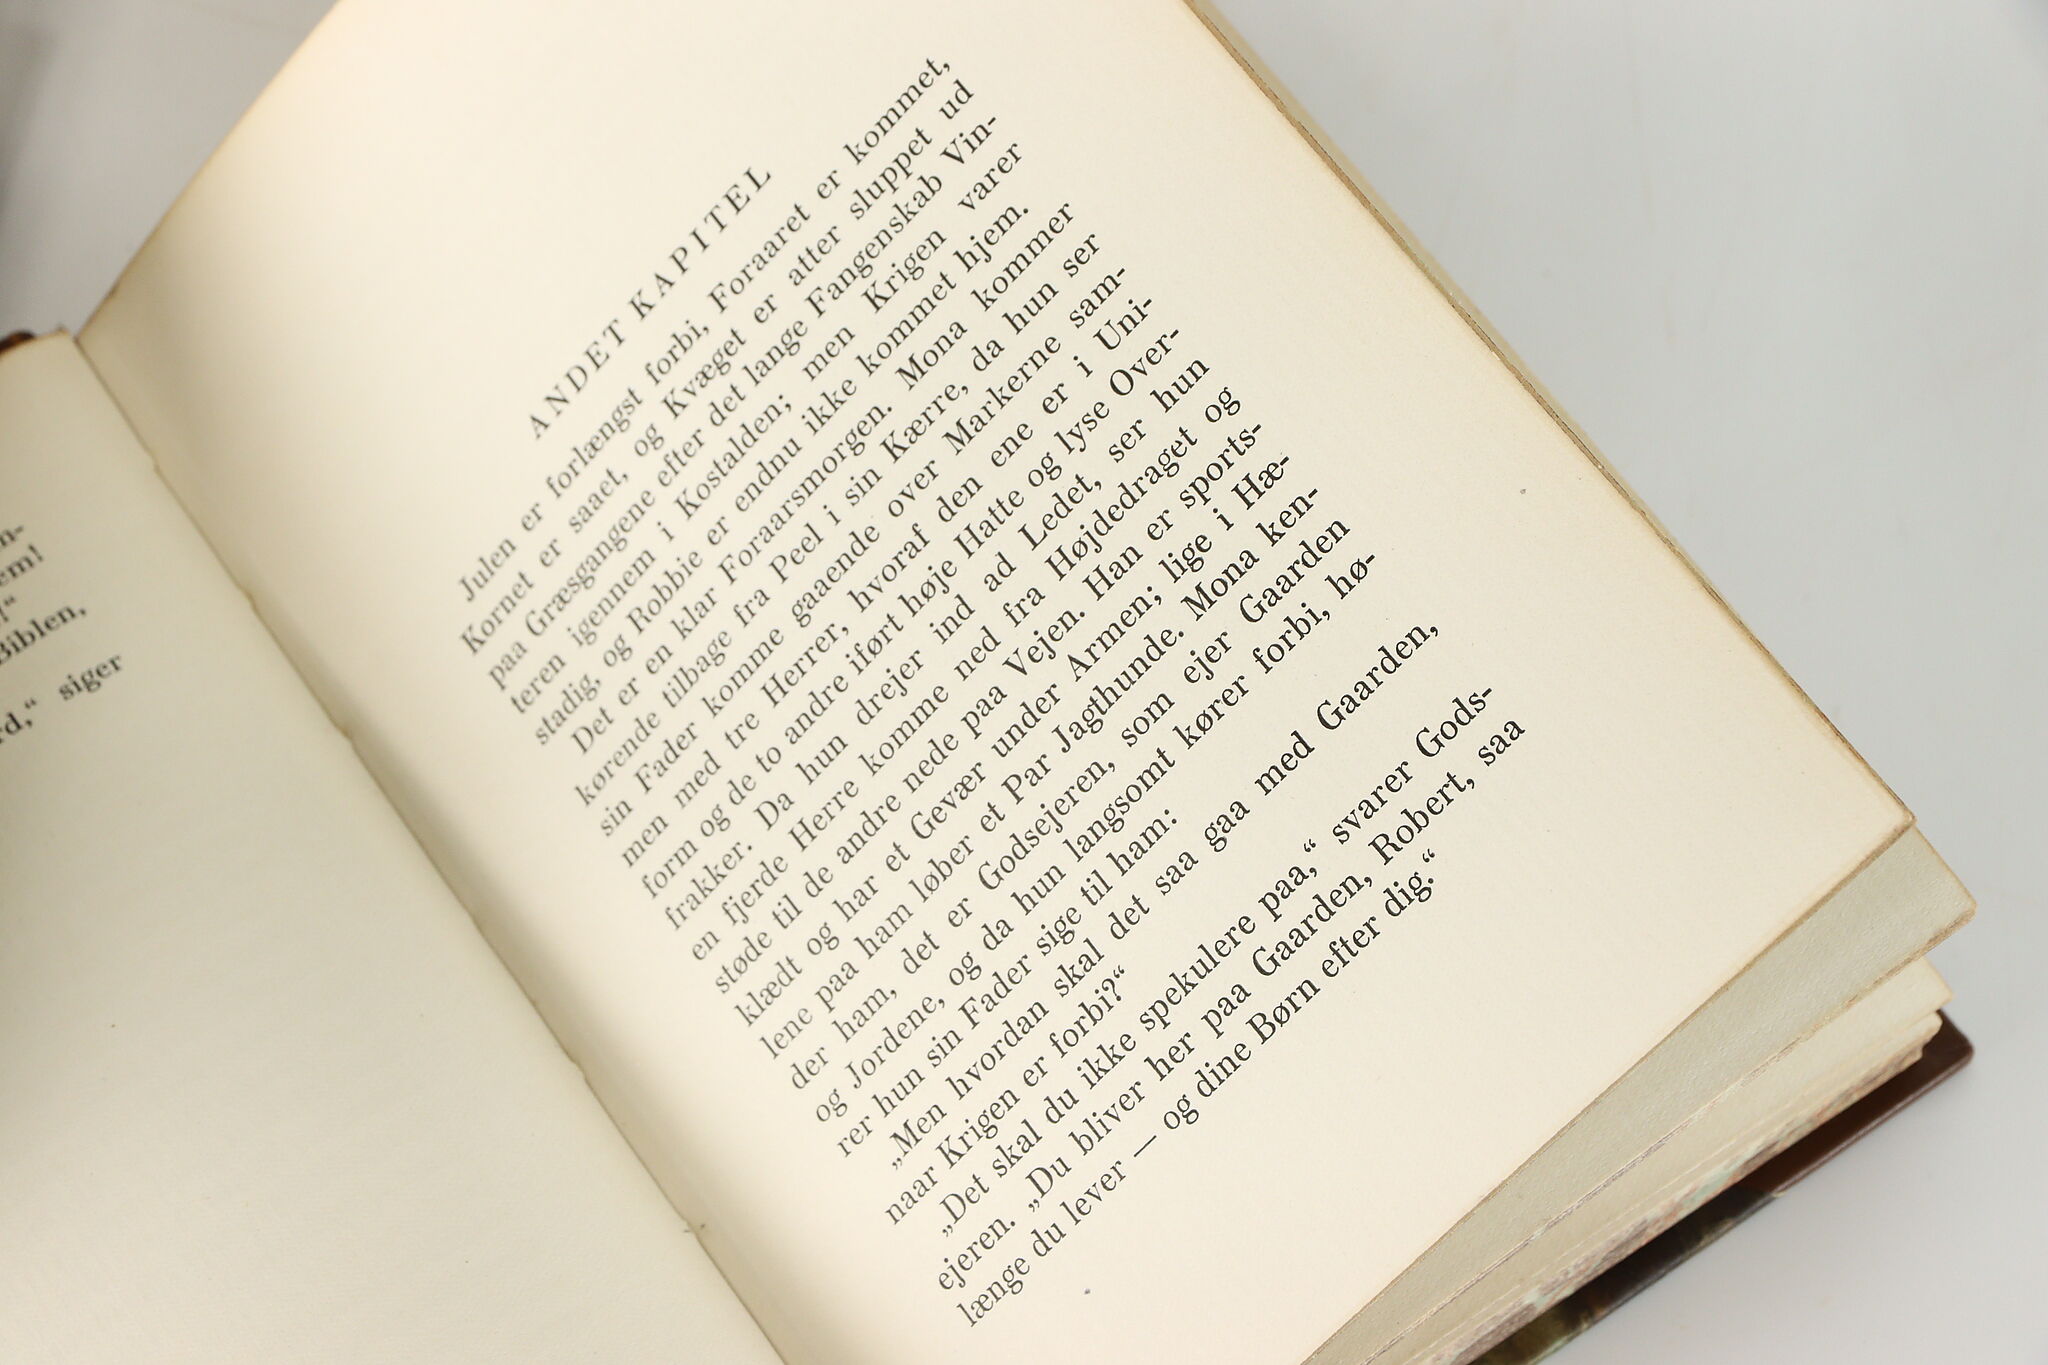 n-
em!
!"
Biblen,
rd,“ siger
ANDET KAPITEL
Julen er forlængst forbi, Foraaret er kommet,
Kornet er saaet, og Kvæget er atter sluppet ud
paa Græsgangene efter det lange Fangenskab Vin-
teren igennem i Kostalden; men Krigen varer
stadig, og Robbie er endnu ikke kommet hjem.
Det er en klar Foraarsmorgen. Mona kommer
kørende tilbage fra Peel i sin Kærre, da hun ser
sin Fader komme gaaende over Markerne sam-
men med tre Herrer, hvoraf den ene er i Uni-
form og de to andre iført høje Hatte og lyse Over-
frakker. Da hun drejer ind ad Ledet, ser hun
en fjerde Herre komme ned fra Højdedraget og
støde til de andre nede paa Vejen. Han er sports-
klædt og har et Gevær under Armen; lige i Hæ-
lene paa ham løber et Par Jagthunde. Mona ken-
der ham, det er Godsejeren, som ejer Gaarden
og Jordene, og da hun langsomt kører forbi, hø-
rer hun sin Fader sige til ham:
„Men hvordan skal det saa gaa med Gaarden,
naar Krigen er forbi?“
„Det skal du ikke spekulere paa,“ svarer Gods-
ejeren. „Du bliver her paa Gaarden, Robert, saa
længe du lever — og dine Børn efter dig.“